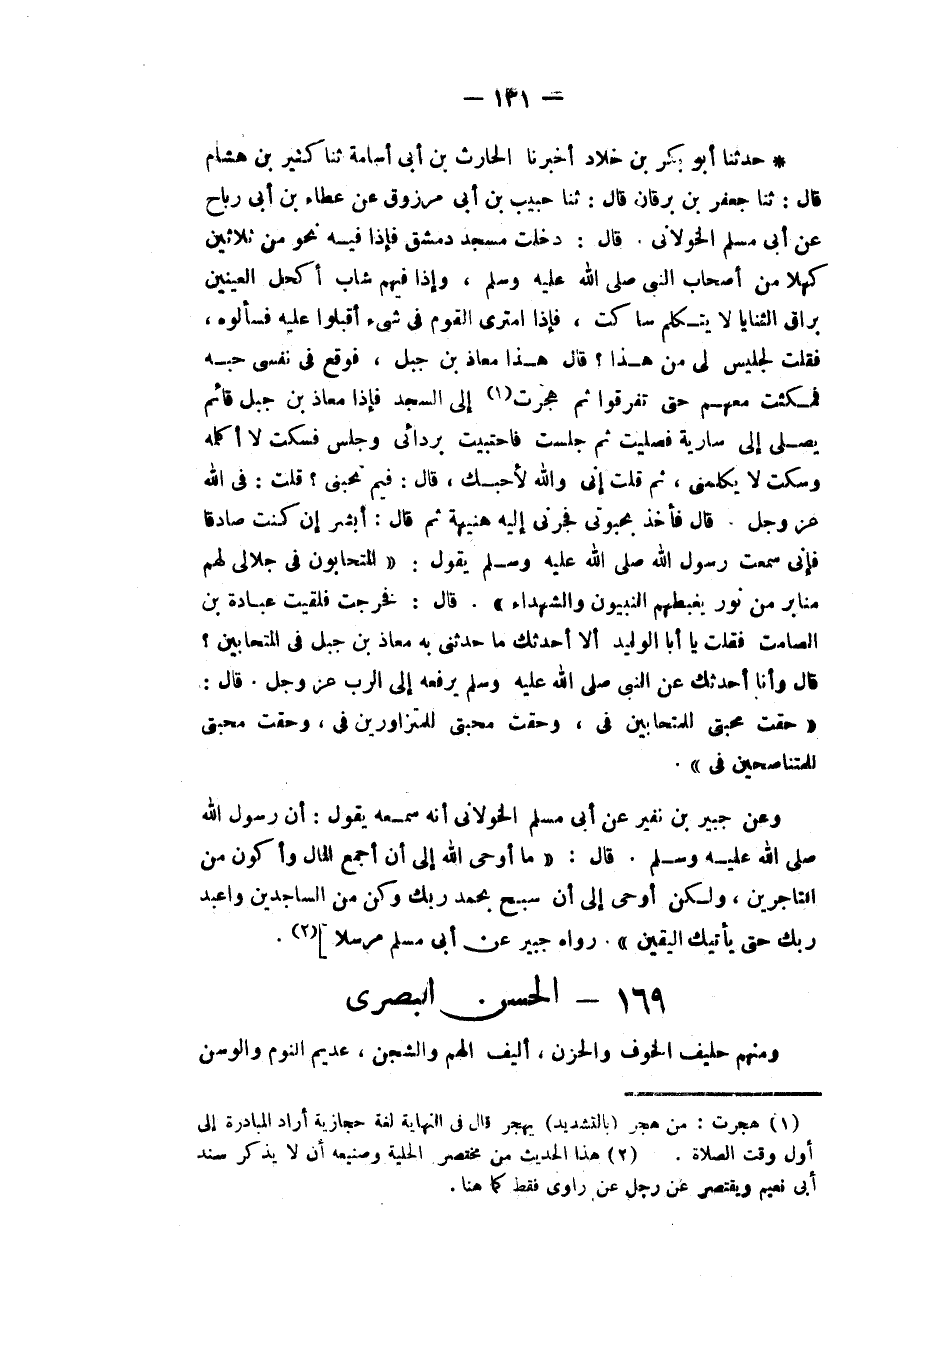 — ١٣١ —
* حدثنا أبو بكر بن خلاد أخبرنا الحارث بن أبى أسامة ثنا كثير بن هشام
قال : ثنا جعفر بن برقان قال : ثنا حبيب بن أبى مرزوق عن عطاء بن أبى رباح
عن أبى مسلم الخولانى . قال : دخلت مسجد دمشق فإذا فيه نحو من ثلاثين
كهلا من أصحاب النبى صلى الله عليه وسلم ، وإذا فيهم شاب أكحل العينين
براق الثنايا لا يتكلم ساكت ، فإذا امترى القوم فى شىء أقبلوا عليه فسألوه ،
فقلت لجليس لى من هذا ؟ قال هذا معاذ بن جبل ، فوقع فى نفسى حبه
فمكثت معهم حتى تفرقوا ثم هجرت(١) إلى السجد فإذا معاذ بن جبل قائم
يصلى إلى سارية فصليت ثم جلست فاحتبيت بردائى وجلس فسكت لا أكلمه
وسكت لا يكلمنى ، ثم قلت إنى والله لأحبك ، قال : فيم تحبنى ؟ قلت : فى الله
عز وجل . قال فأخذ بحبوتى فجرنى إليه هنيهة ثم قال : أبشر إن كنت صادقا
فإنى سمعت رسول الله صلى الله عليه وسلم يقول : « المتحابون فى جلالى لهم
منابر من نور يغبطهم النبيون والشهداء » . قال : فخرجت فلقيت عبادة بن
الصامت فقلت يا أبا الوليد ألا أحدثك ما حدثنى به معاذ بن جبل فى المتحابين ؟
قال وأنا أحدثك عن النبى صلى الله عليه وسلم يرفعه إلى الرب عز وجل . قال :
« حقت محبتى للمتحابين فى ، وحقت محبتى للمتزاورين فى ، وحقت محبتى
للمتناصحين فى » .
وعن جبير بن نفير عن أبى مسلم الخولانى أنه سمعه يقول : أن رسول الله
صلى الله عليه وسلم . قال : « ما أوحى الله إلى أن أجمع المال وأكون من
التاجرين ، ولكن أوحى إلى أن سبح بحمد ربك وكن من الساجدين واعبد
ربك حتى يأتيك اليقين » . رواه جبير عن أبى مسلم مرسلا ](٢) .
١٦٩ — الحسن البصرى
ومنهم حليف الخوف والحزن ، أليف الهم والشجن ، عديم النوم والوسن
(١) هجرت : من هجر (بالتشديد) يهجر قال فى النهاية لغة حجازية أراد المبادرة إلى
أول وقت الصلاة . (٢) هذا الحديث من مختصر الحلية وصنيعه أن لا يذكر سند
أبى نعيم ويقتصر عن رجل عن راوى فقط كما هنا .